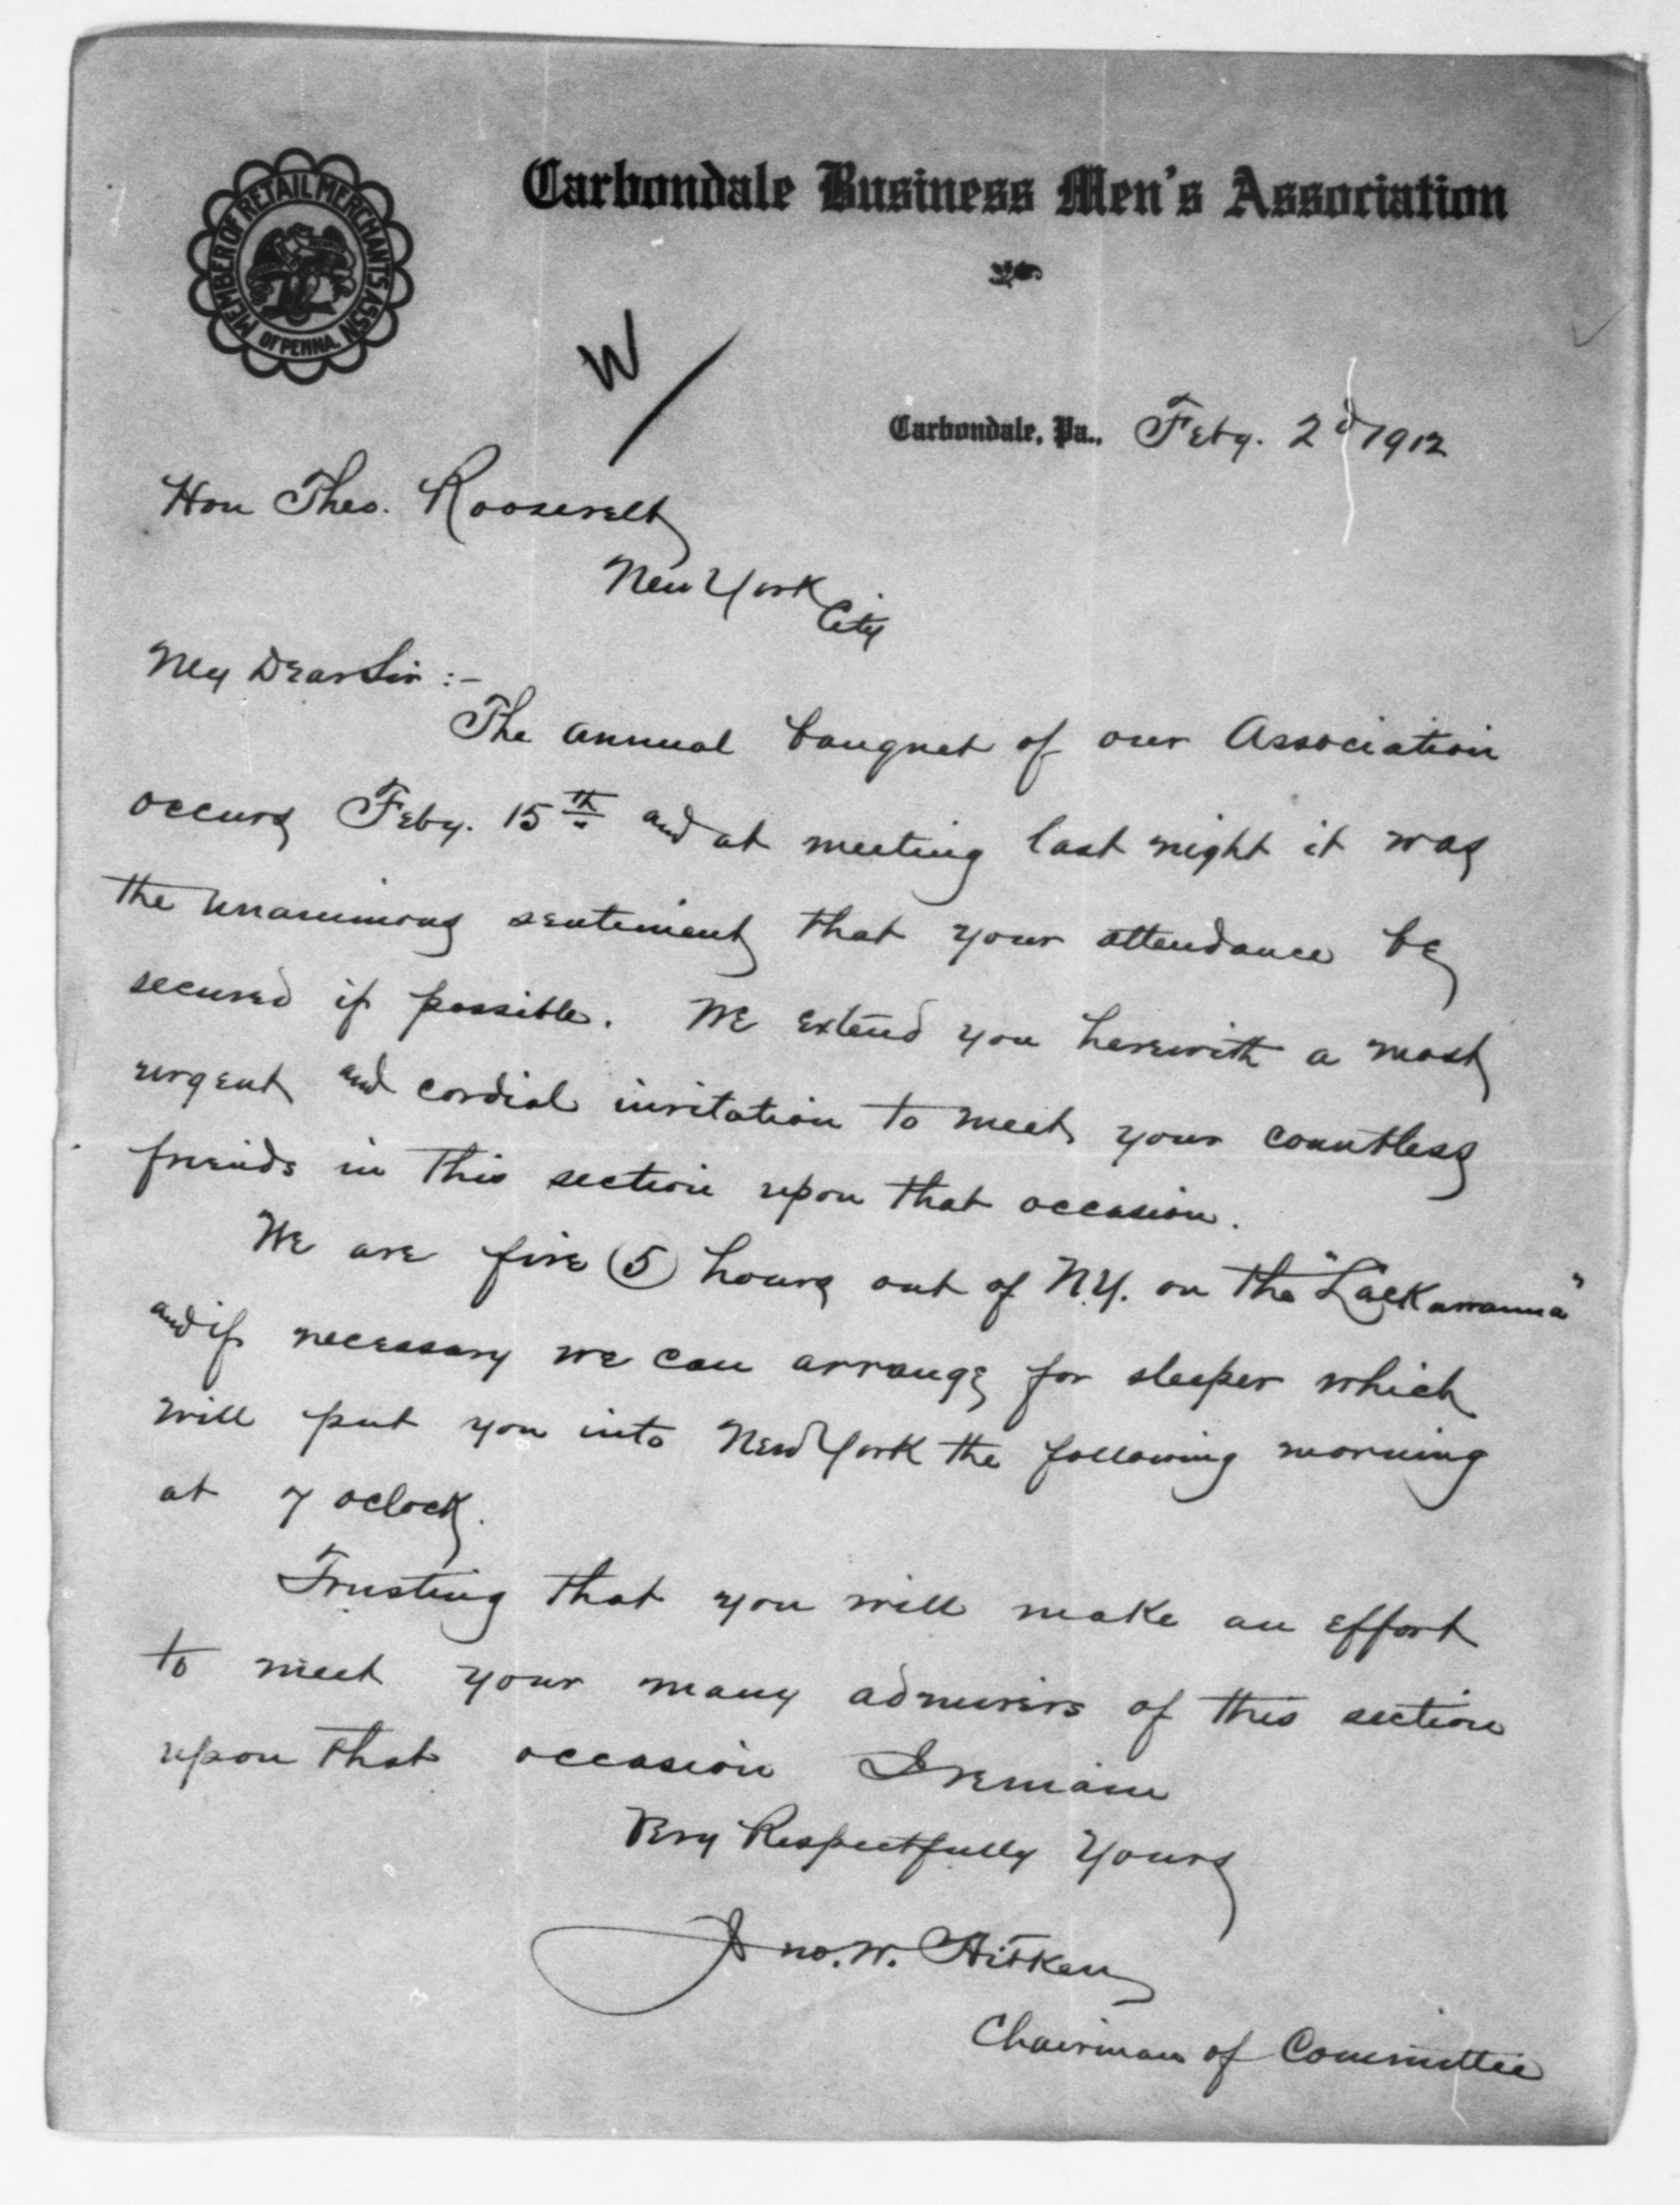 Carbondale Business Men's Association
MEMBER OF RETAIL MERCHANTS ASSN
OF PENNA.
W /
Carbondale, Pa., Feby. 2d 1912
Hon Theo. Roosevelt
New York
City
My Dear Sir :-
The annual banquet of our Association
occurs Feby. 15th and at meeting last night it was
the unanimous sentiment that your attendance be
secured if possible. We extend you herewith a most
urgent and cordial invitation to meet your countless
friends in this section upon that occasion.
We are five (5) hours out of N.Y. on the "Lackawanna"
and if necessary we can arrange for sleeper which
will put you into New York the following morning
at 7 oclock.
Trusting that you will make an effort
to meet your many admirers of this section
upon that occasion I remain
Very Respectfully Yours
Jno. W. Aitken
Chairman of Committee